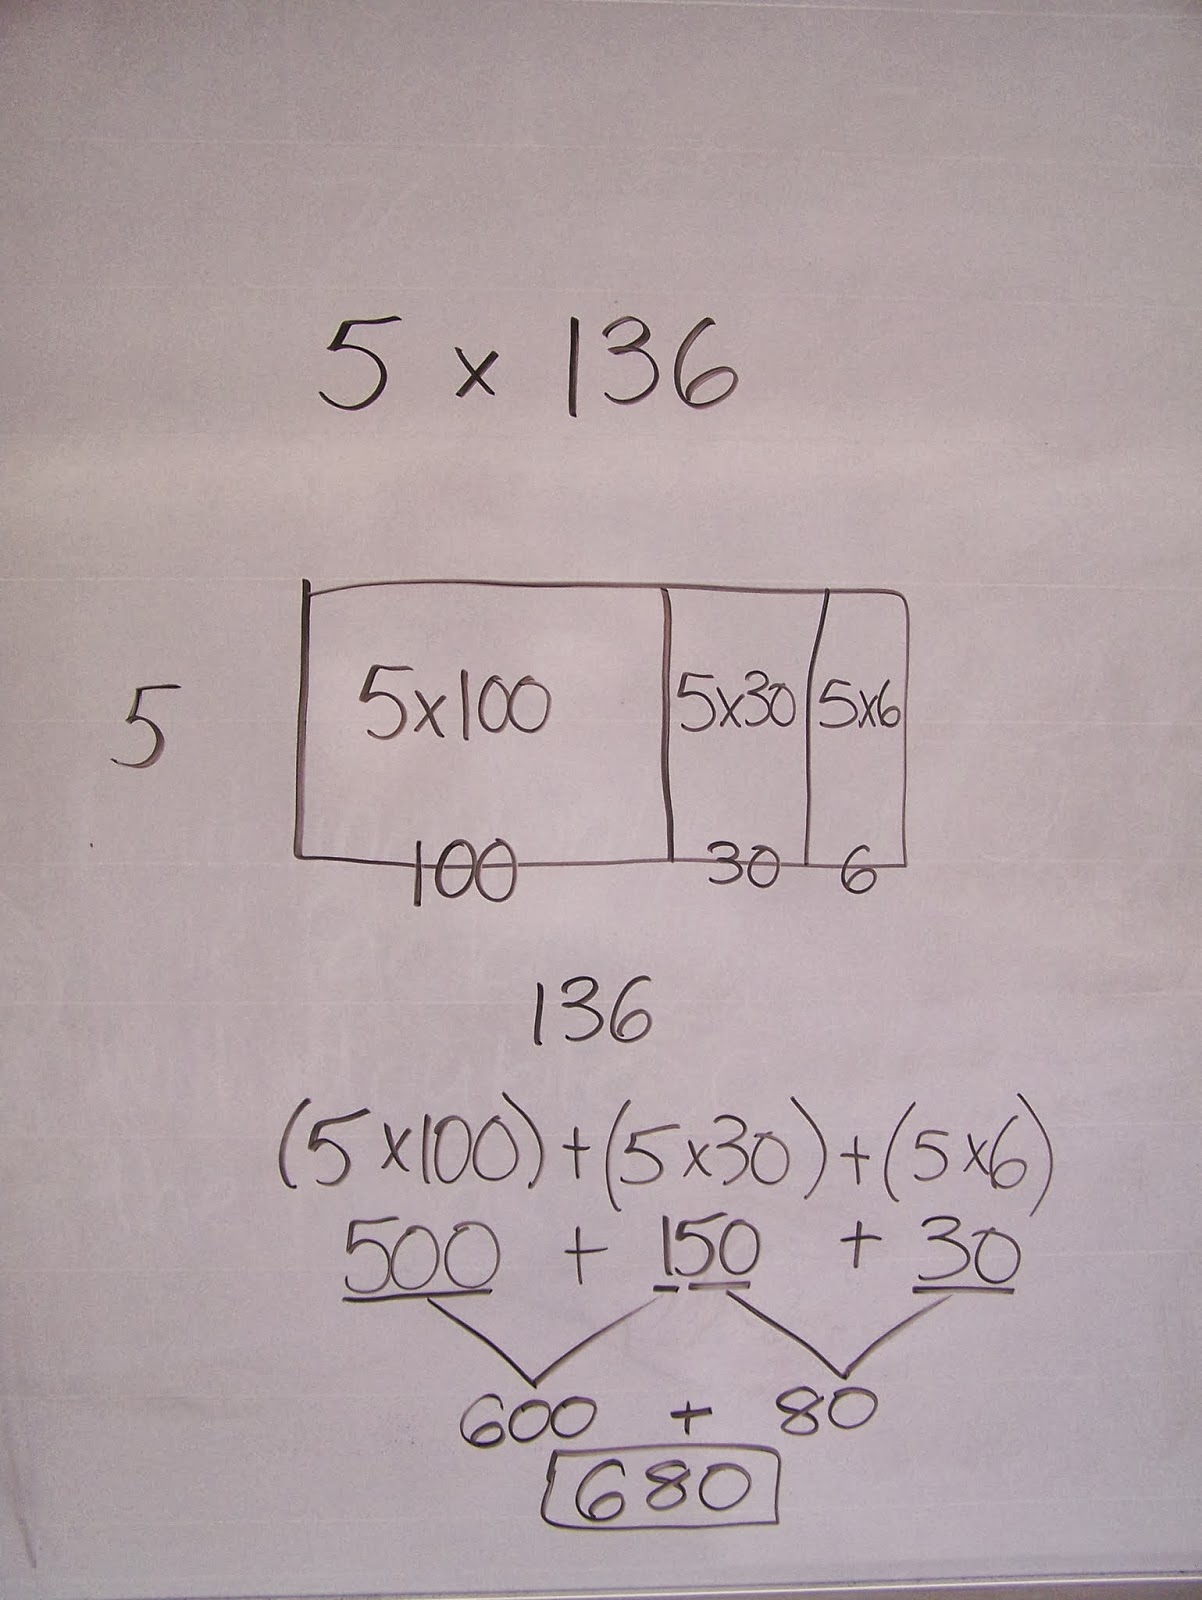 5 x 136
5x100 5x30 5x6
5
100 30 6
136
(5x100)+(5x30)+(5x6)
500 + 150 + 30
600 + 80
680